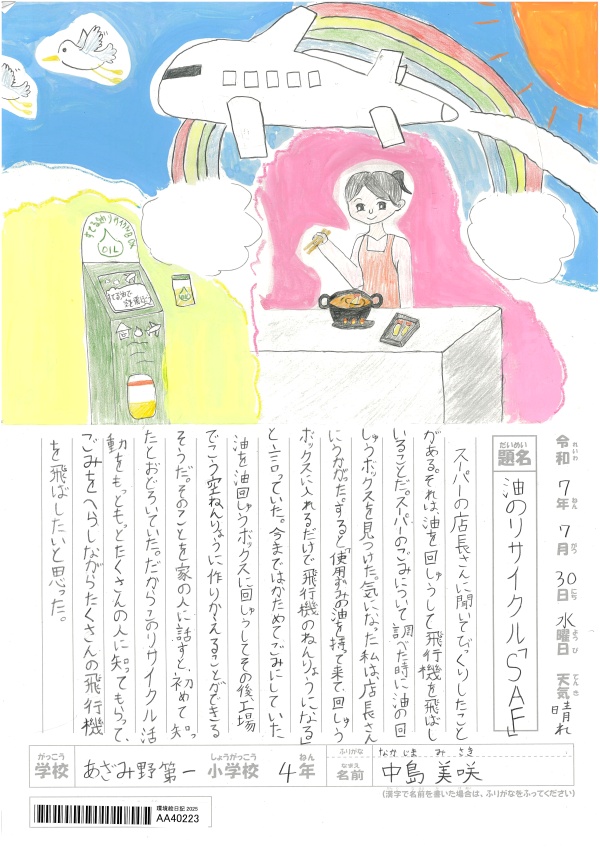 すてる油リサイクルBOX
OIL
すてる油で空を飛ぼう
OIL
令和7年7月30日水曜日 天気晴れ
れいわ ねん がつ にち ようび てんき
だいめい
題名 油のリサイクル「SAF」
スーパーの店長さんに聞いてびっくりしたこと
がある。それは、油を回しゅうして飛行機を飛ばして
いることだ。スーパーのごみについて調べた時に油の回
しゅうボックスを見つけた。気になった私は、店長さん
にうかがった。すると「使用ずみの油を持って来て、回しゅう
ボックスに入れるだけで飛行機のねんりょうになる」
と言っていた。今まではかためてごみにしていた
油を油回しゅうボックスに回しゅうしてその後工場
でこう空ねんりょうに作りかえることができる
そうだ。そのことを家の人に話すと、初めて知っ
たとおどろいていた。だからこのリサイクル活
動をもっともっとたくさんの人に知ってもらって、
ごみをへらしながらたくさんの飛行機
を飛ばしたいと思った。
がっこう しょうがっこう ねん
学校 あざみ野第一小学校 4年
ふりがな なかじま みさき
なまえ
名前 中島 美咲
(漢字で名前を書いた場合は、ふりがなをふってください)
環境絵日記 2025
AA40223